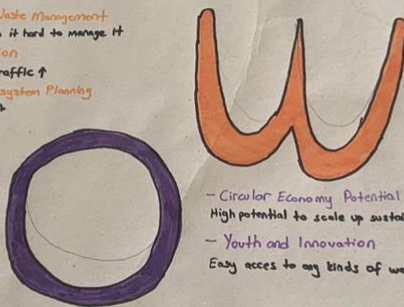 Waste Management
it hard to manage it
raffic ↑
system Planning
W
O
- Circular Economy Potential
High potential to scale up
- Youth and Innovation
Easy acces to any kinds of